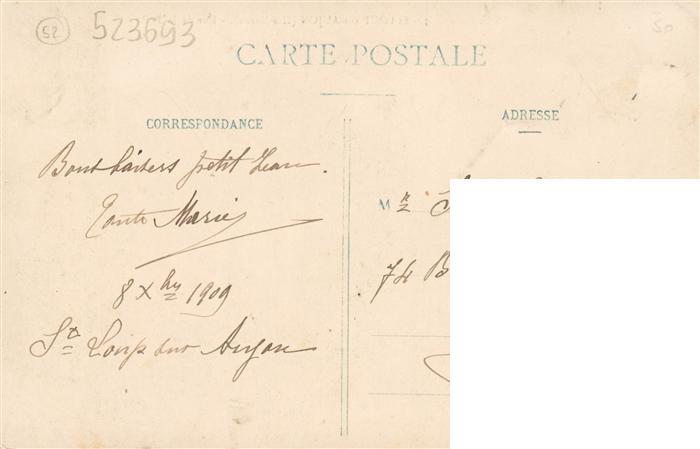 52
523693
50
CARTE POSTALE
CORRESPONDANCE
ADRESSE
Bons baisers petit Jean.
Tante Marie
8 Xbre 1909
St Loup sur Aujon
Mr
74 B